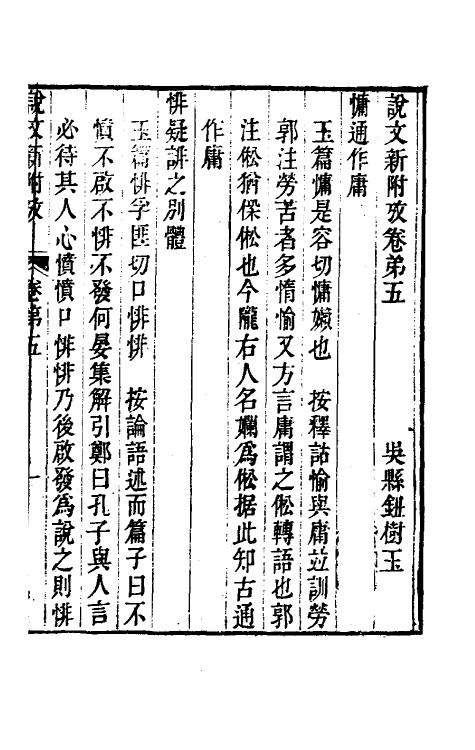 說文新附攷卷弟五
吳縣鈕樹玉
慵通作庸
玉篇慵是容切慵嬾也　按釋詁愉與庸竝訓勞
郭注勞苦者多惰愉又方言庸謂之倯轉語也郭
注倯猶保倯也今隴右人名孏爲倯据此知古通
作庸
悱疑誹之別體
玉篇悱孚匪切口悱悱　按論語述而篇子曰不
憤不啟不悱不發何晏集解引鄭曰孔子與人言
必待其人心憤憤口悱悱乃後啟發爲說之則悱
說文新附攷
卷第五
一